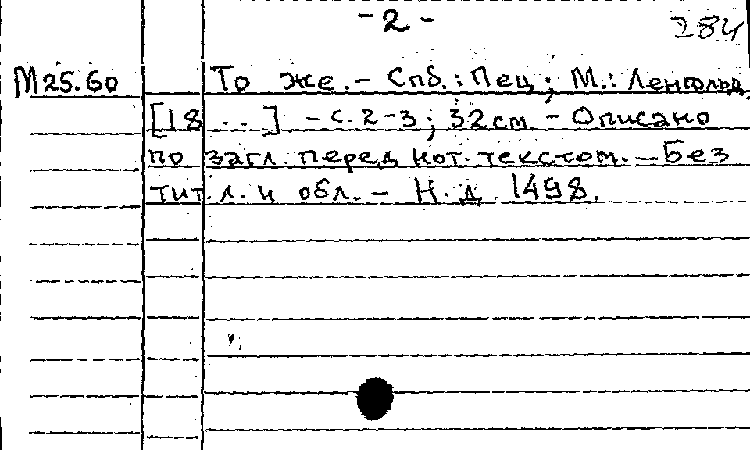 - 2 -
284
М25.60 То же. - Спб.: Пец; М.: Ленгольд,
[18 . .] - с. 2-3; 32 см. - Описано
по загл. перед нот. текстом. - Без
тит. л. и обл. - Н. д. 1498.